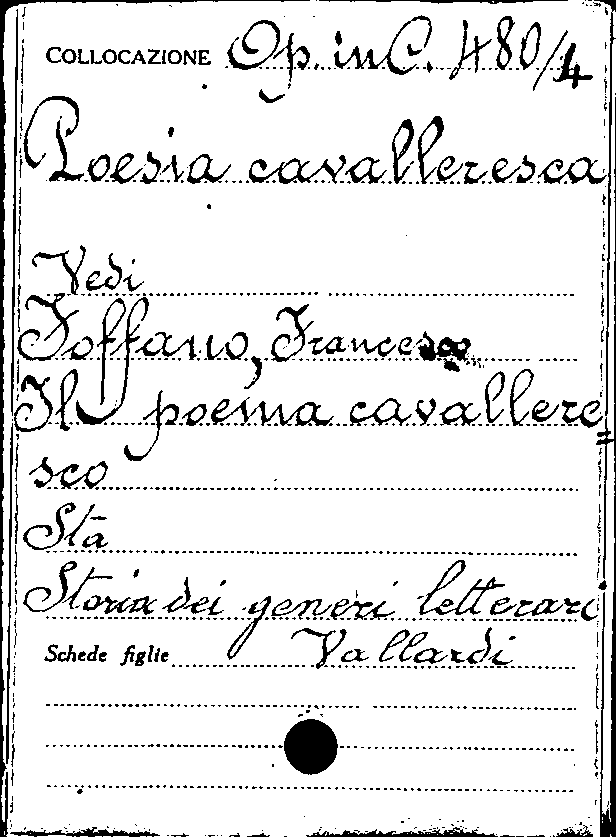 COLLOCAZIONE Op. in C. 480/4
Poesia cavalleresca
Vedi
Foffano, Francesco
Il poema cavallere=
sco
Sta
Storia dei generi letterari
Schede figlie Vallardi